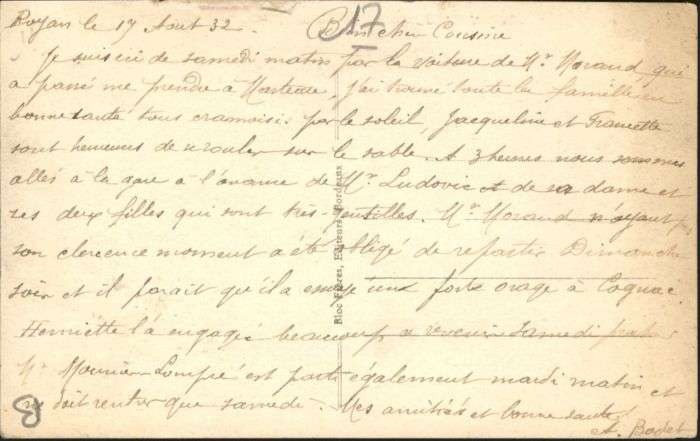 Royan le 17 Aout 32.
17
Bien cher Cousine
Je suis ici de samedi matin par la voiture de Mr Morand qui
a passé me prendre à j'ai trouvé toute la famille en
bonne santé tous cramoisis par le soleil, Jacqueline et Francette
sont heureuses de se rouler sur le sable. A 3 heures nous sommes
allés à la gare à l'avance de Mr Ludovic et de sa dame et
ses deux filles qui sont très gentilles. Mr Morand n'ayant pas
son moment a été obligé de repartir Dimanche
soir et il parait qu'il a essuyé une forte orage à Cognac.
Henriette l'a engagé beaucoup a revenir samedi
Mr Mounier est parti également mardi matin et
ne doit rentrer que samedi. Mes amitiés et bonne santé
A. Bodet
8
Bloc Frères, Editeurs, Bordeaux